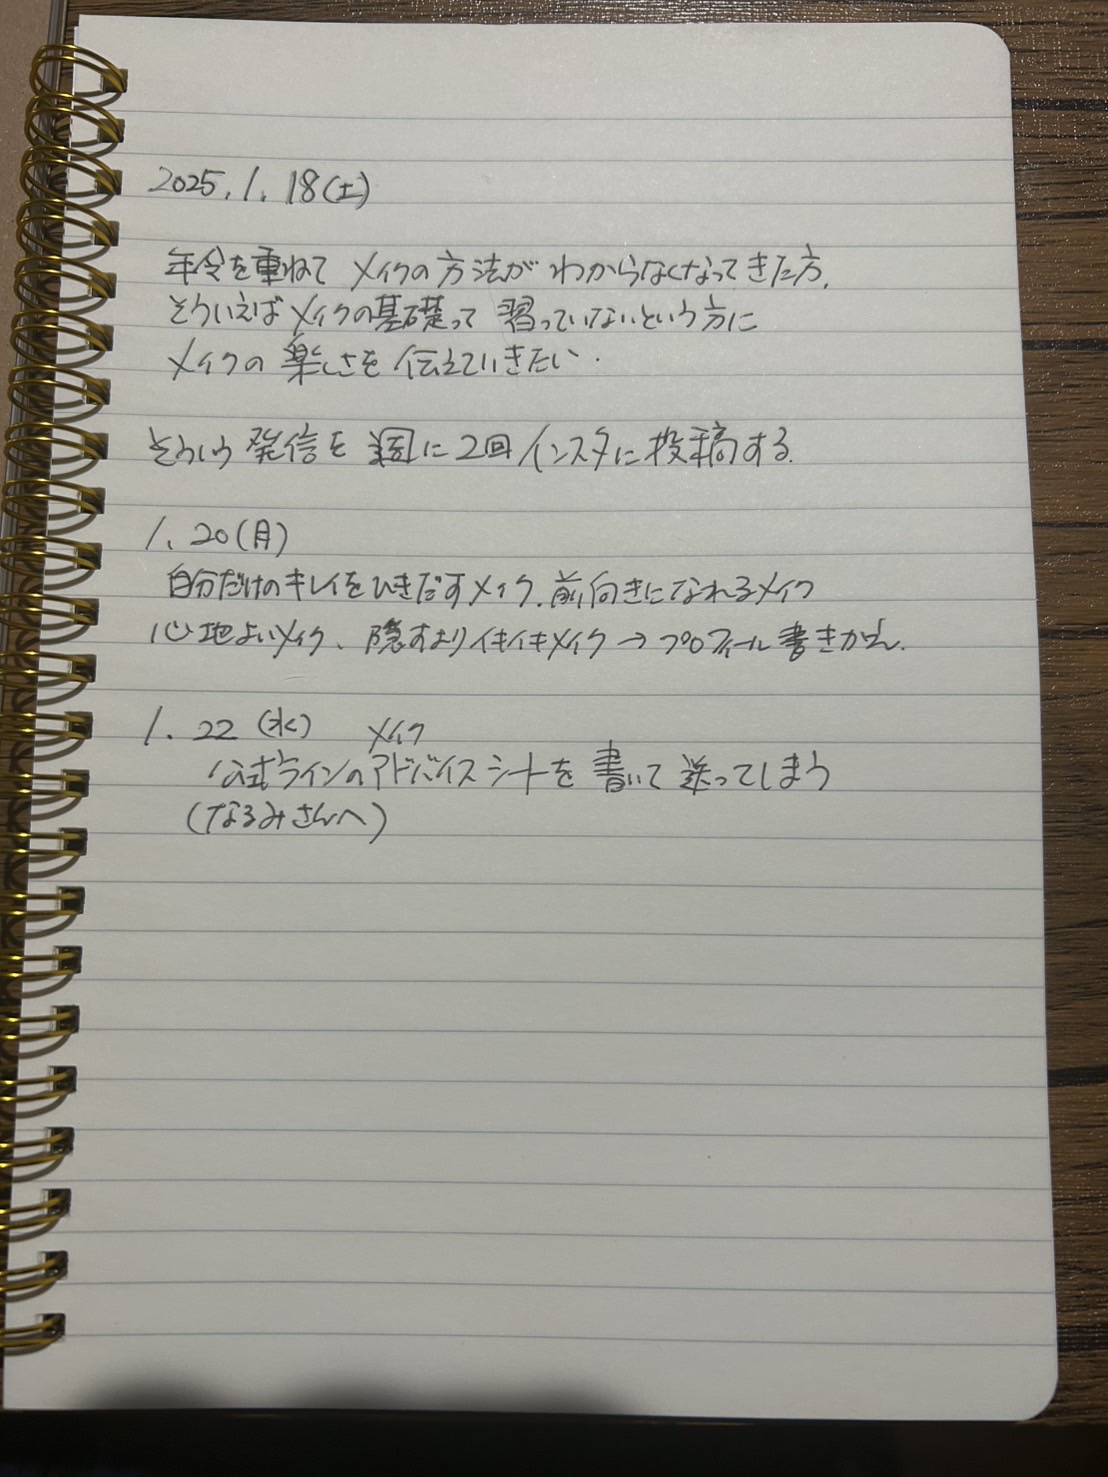 2025.1.18(土)
年令を重ねて メイクの方法が わからなくなってきた方、
そういえば メイクの基礎って 習っていないという方に
メイクの 楽しさを 伝えていきたい.
そういう 発信を 週に2回 インスタに投稿する.
1.20(月)
自分だけのキレイをひきだすメイク、前向きになれるメイク
心地よいメイク、隠すよりイキイキメイク→プロフィール書きかえ.
1.22(水) メイク
公式ラインのアドバイスシートを 書いて 送ってしまう
(なるみさんへ)